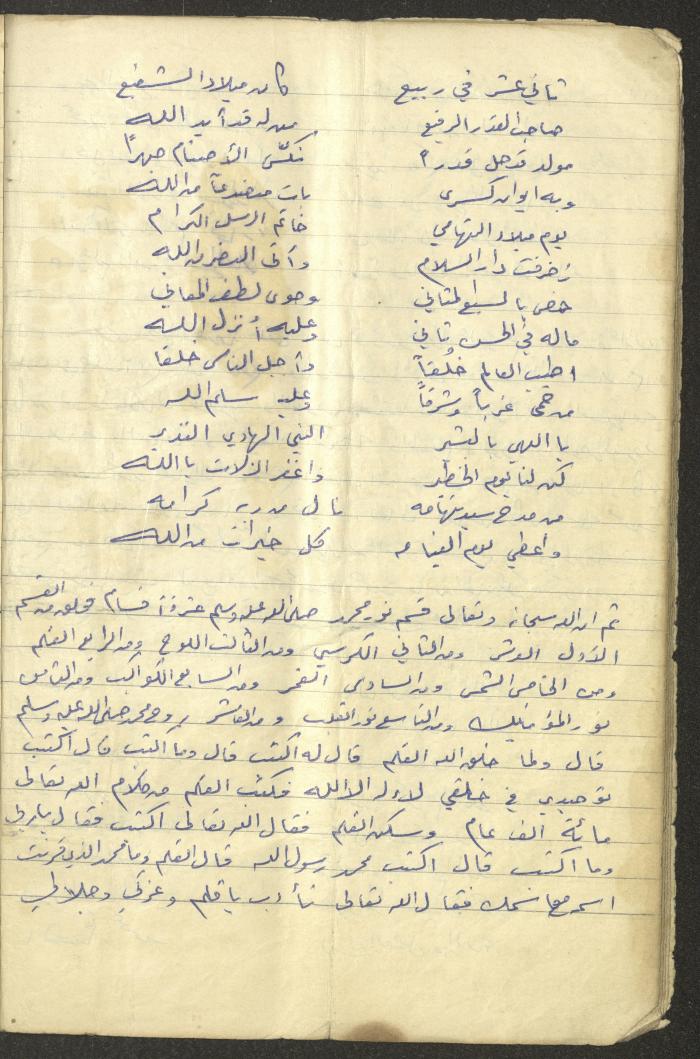 ثاني عشر في ربيع كان ميلاد الشفيع
صاحب القدر الرفيع من له قد أيد الله
مولد قد جل قدرا نكس الأصنام جهراً
وبه ايوان كسرى بات منصدعاً من الله
يوم ميلاد التهامي خاتم الرسل الكرام
زخرفت دار السلام وأتى النصر من الله
خص بالسبع المثاني وحوى لطف المعاني
ماله في الحسن ثاني وعليه أنزل الله
اطيب العالم خلقاً وأجل الناس خلقا
من حمى غرباً وشرقاً وعليه سلم الله
يا الهي بالبشير النبي الهادي النذير
كن لنا يوم الخطير واغفر الزلات يا الله
من مدح سيد تهامه نال من ربه كرامه
واعطي يوم القيامه كل خيرات من الله
ثم ان الله سبحانه وتعالى قسم نور محمد صلى الله عليه وسلم عشرة أقسام فخلق من القسم
الأول العرش ومن الثاني الكرسي ومن الثالث اللوح ومن الرابع القلم
ومن الخامس الشمس ومن السادس القمر ومن السابع الكواكب ومن الثامن
نور المؤمنين ومن التاسع نور القلب ومن العاشر روح محمد صلى الله عليه وسلم
قال ولما خلق الله القلم قال له اكتب قال وما اكتب قال اكتب
توحيدي في خلقي لا إله الا الله فكتب القلم من كلام الله تعالى
مائة الف عام وسكن القلم فقال الله تعالى اكتب فقال يا ربي
وما اكتب قال اكتب محمد رسول الله قال القلم وما محمد الذي قرنت
اسمه مع اسمك فقال الله تعالى تأدب يا قلم وعزتي وجلالي